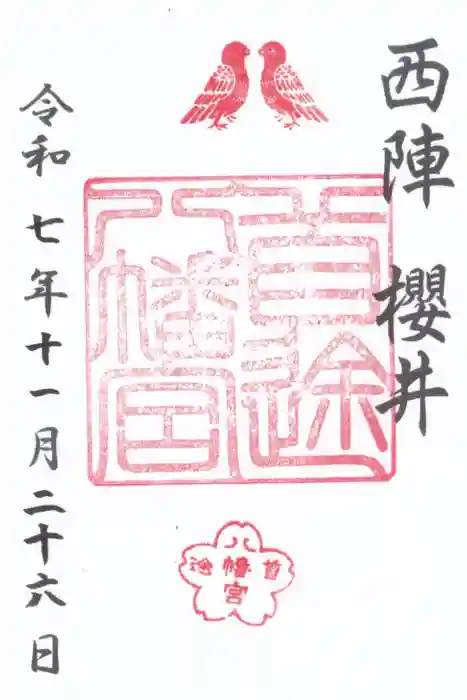 西陣 櫻井
首途
八幡宮
八
首幡途
宮
令和七年十一月二十六日